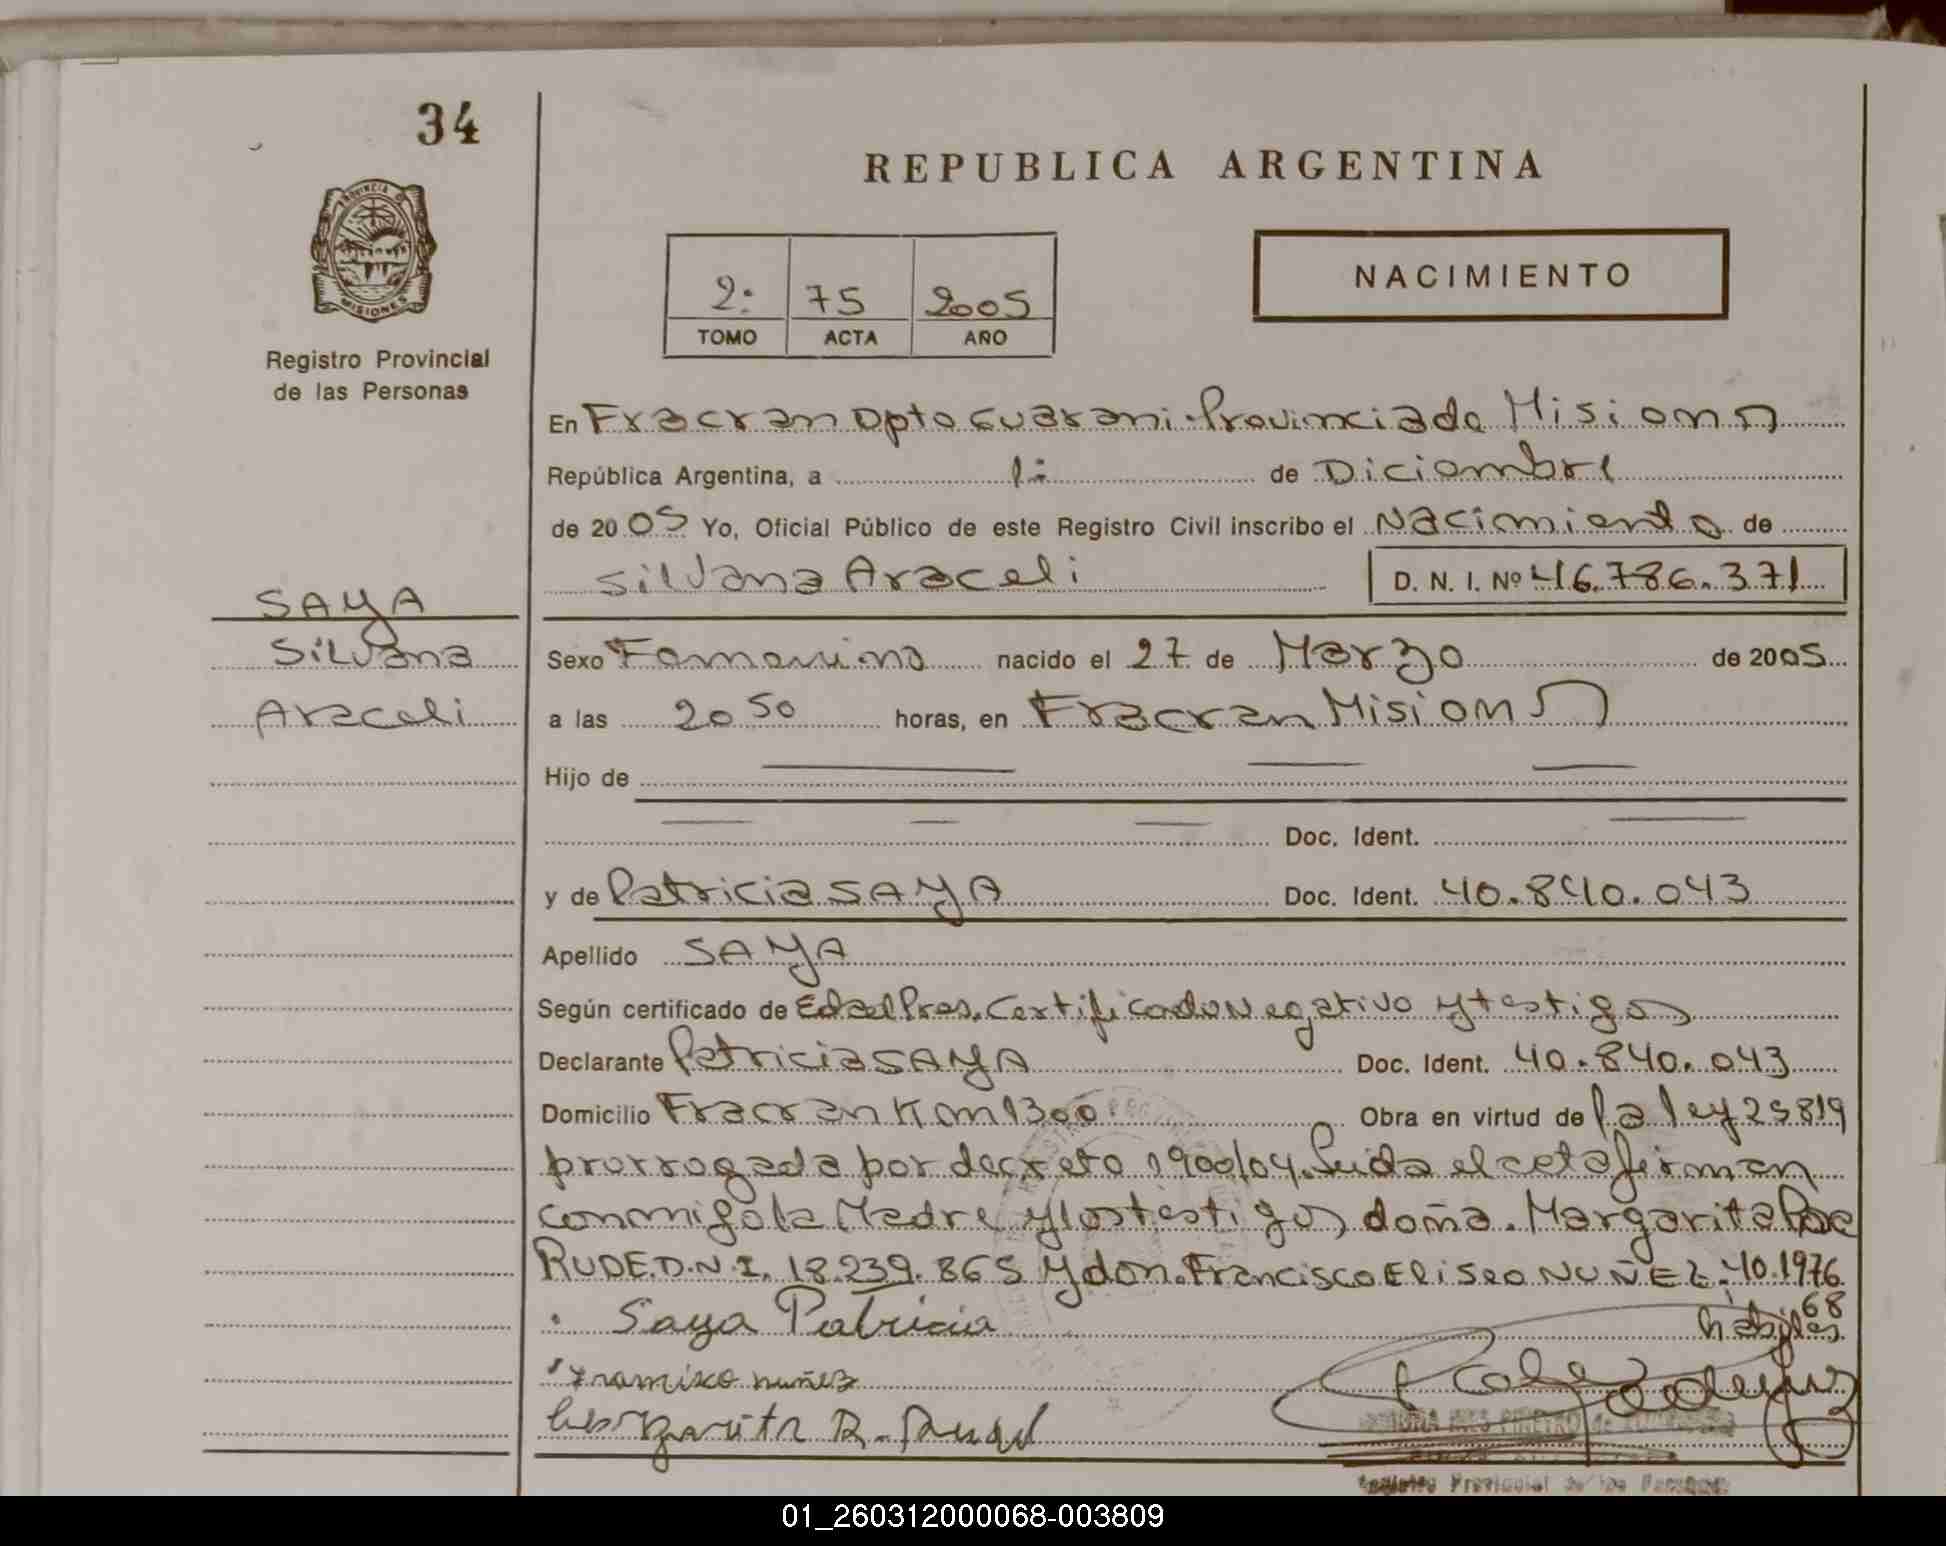 34
REPUBLICA ARGENTINA
PROVINCIA DE
MISIONES
Registro Provincial
de las Personas
2: 75 2005
TOMO ACTA AÑO
NACIMIENTO
En Fracran Dpto Guarani-Provincia de Misiones
República Argentina, a 1: de Diciembre
de 2005 Yo, Oficial Público de este Registro Civil inscribo el Nacimiento de
Silvana Araceli D. N. I. Nº 46.786.371
SAYA
Silvana
Araceli
Sexo Femenino nacido el 27 de Marzo de 2005
a las 20 50 horas, en Fracran Misiones
Hijo de
Doc. Ident.
y de Patricia SAYA Doc. Ident. 40.840.043
Apellido SAYA
Según certificado de Edad Pres. Certificado Negativo y testigos
Declarante Patricia SAYA Doc. Ident. 40.840.043
Domicilio Fracran Km 1300 Obra en virtud de la ley 25819
prorrogada por decreto 1900/04. Leida el acta firman
conmigo la Madre y los testigos doña. Margarita
RUDE.D.N.I. 18.239.865 y don. Francisco Eliseo NUÑEZ: 40.1976
68
habiles
Saya Patricia
nuñez
Margarita R.
Registro Provincial de las Personas
01_260312000068-003809